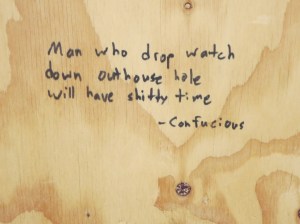 Man who drop watch
down outhouse hole
will have shitty time
- Confucious